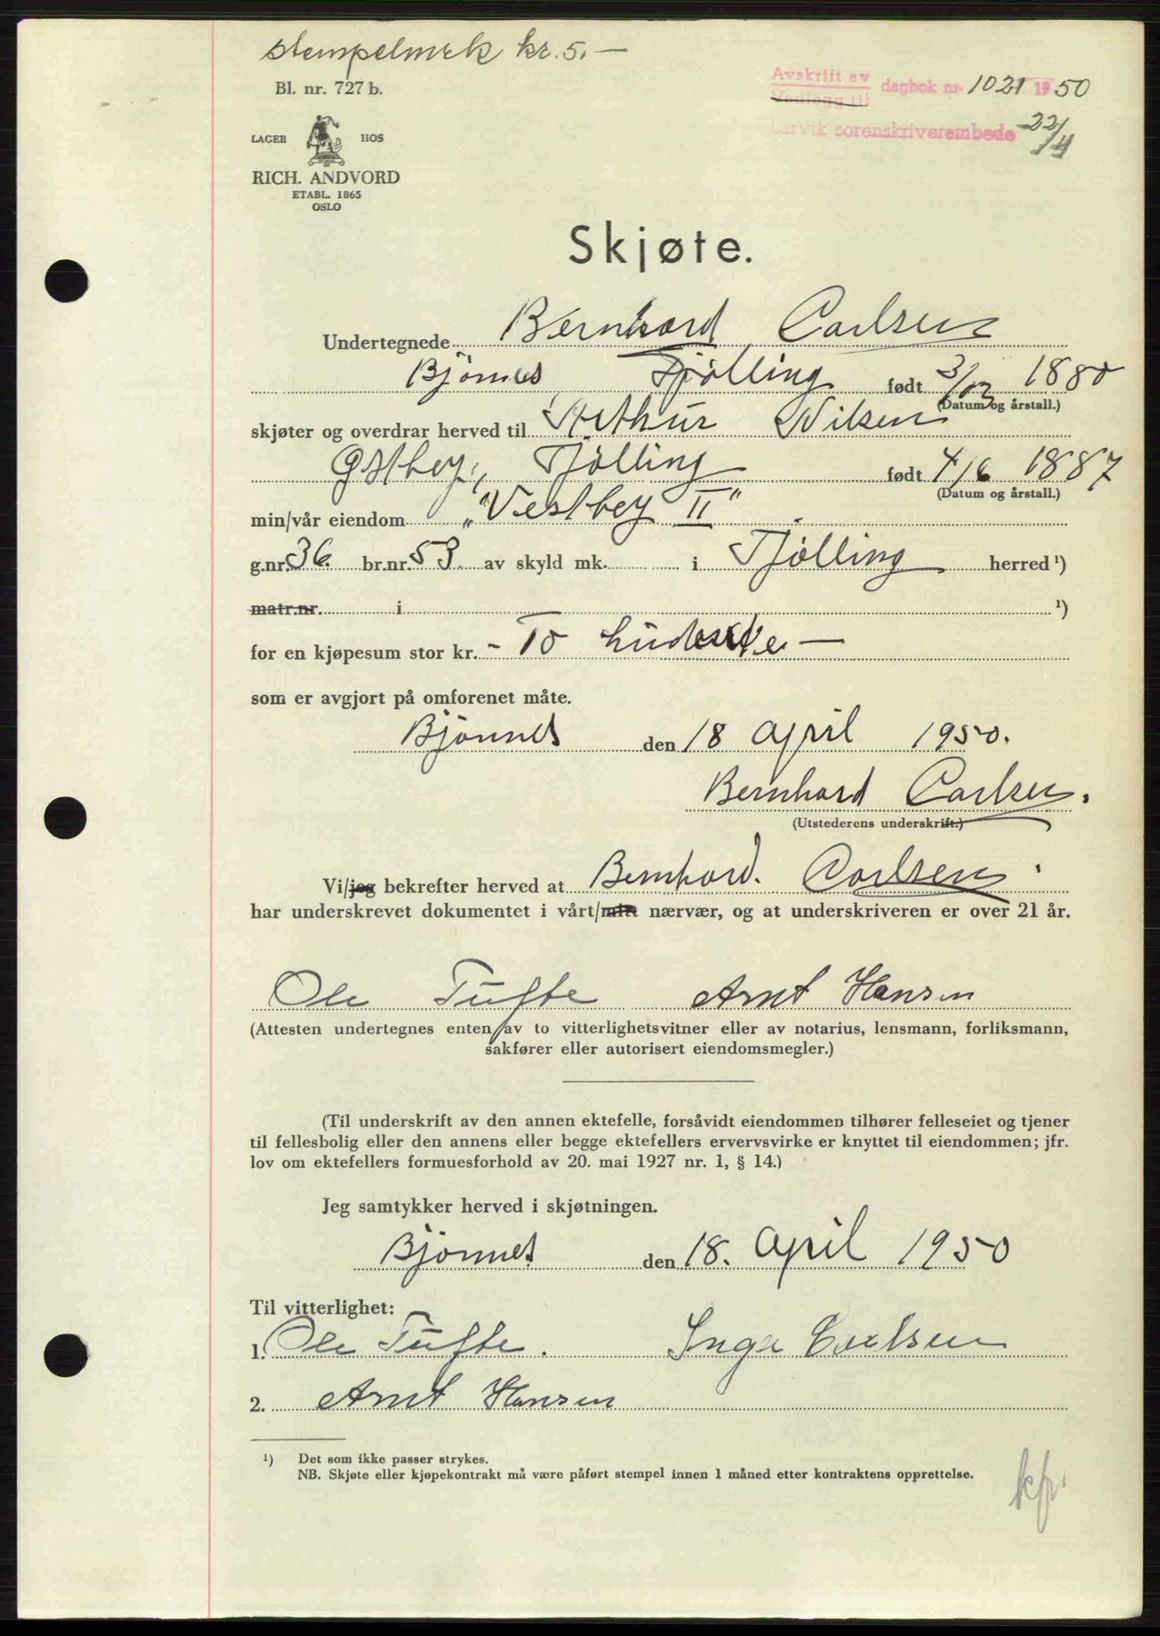 stempelmrk kr. 5. —
Bl. nr. 727 b.
Avskrift av
Vedlegg til
dagbok nr. 1021 1950
Larvik sorenskriverembede 22/4
LAGER HOS
RICH. ANDVORD
ETABL. 1865
OSLO
Skjøte.
Undertegnede Bernhard Carlsen
Bjønnes Tjölling født 3/12 1880
(Datum og årstall.)
skjøter og overdrar herved til Arthur Nilsen
Østbey, Tjölling født 4/6 1887
(Datum og årstall.)
min/vår eiendom "Vestbey II"
g.nr. 36. br.nr. 53. av skyld mk. i Tjölling herred ¹)
matr.nr. i ¹)
for en kjøpesum stor kr. - To hundre —
som er avgjort på omforenet måte.
Bjönnes den 18 april 1950.
Bernhard Carlsen.
(Utstederens underskrift.)
Vi/jeg bekrefter herved at Bernhard. Carlsen
har underskrevet dokumentet i vårt/mitt nærvær, og at underskriveren er over 21 år.
Ole Tufte Arnt Hansen
(Attesten undertegnes enten av to vitterlighetsvitner eller av notarius, lensmann, forliksmann,
sakfører eller autorisert eiendomsmegler.)
(Til underskrift av den annen ektefelle, forsåvidt eiendommen tilhører felleseiet og tjener
til fellesbolig eller den annens eller begge ektefellers ervervsvirke er knyttet til eiendommen; jfr.
lov om ektefellers formuesforhold av 20. mai 1927 nr. 1, § 14.)
Jeg samtykker herved i skjøtningen.
Bjönnes den 18. april 1950
Til vitterlighet:
1. Ole Tufte. Inga Carlsen
2. Arnt Hansen
¹) Det som ikke passer strykes.
NB. Skjøte eller kjøpekontrakt må være påført stempel innen 1 måned etter kontraktens opprettelse.